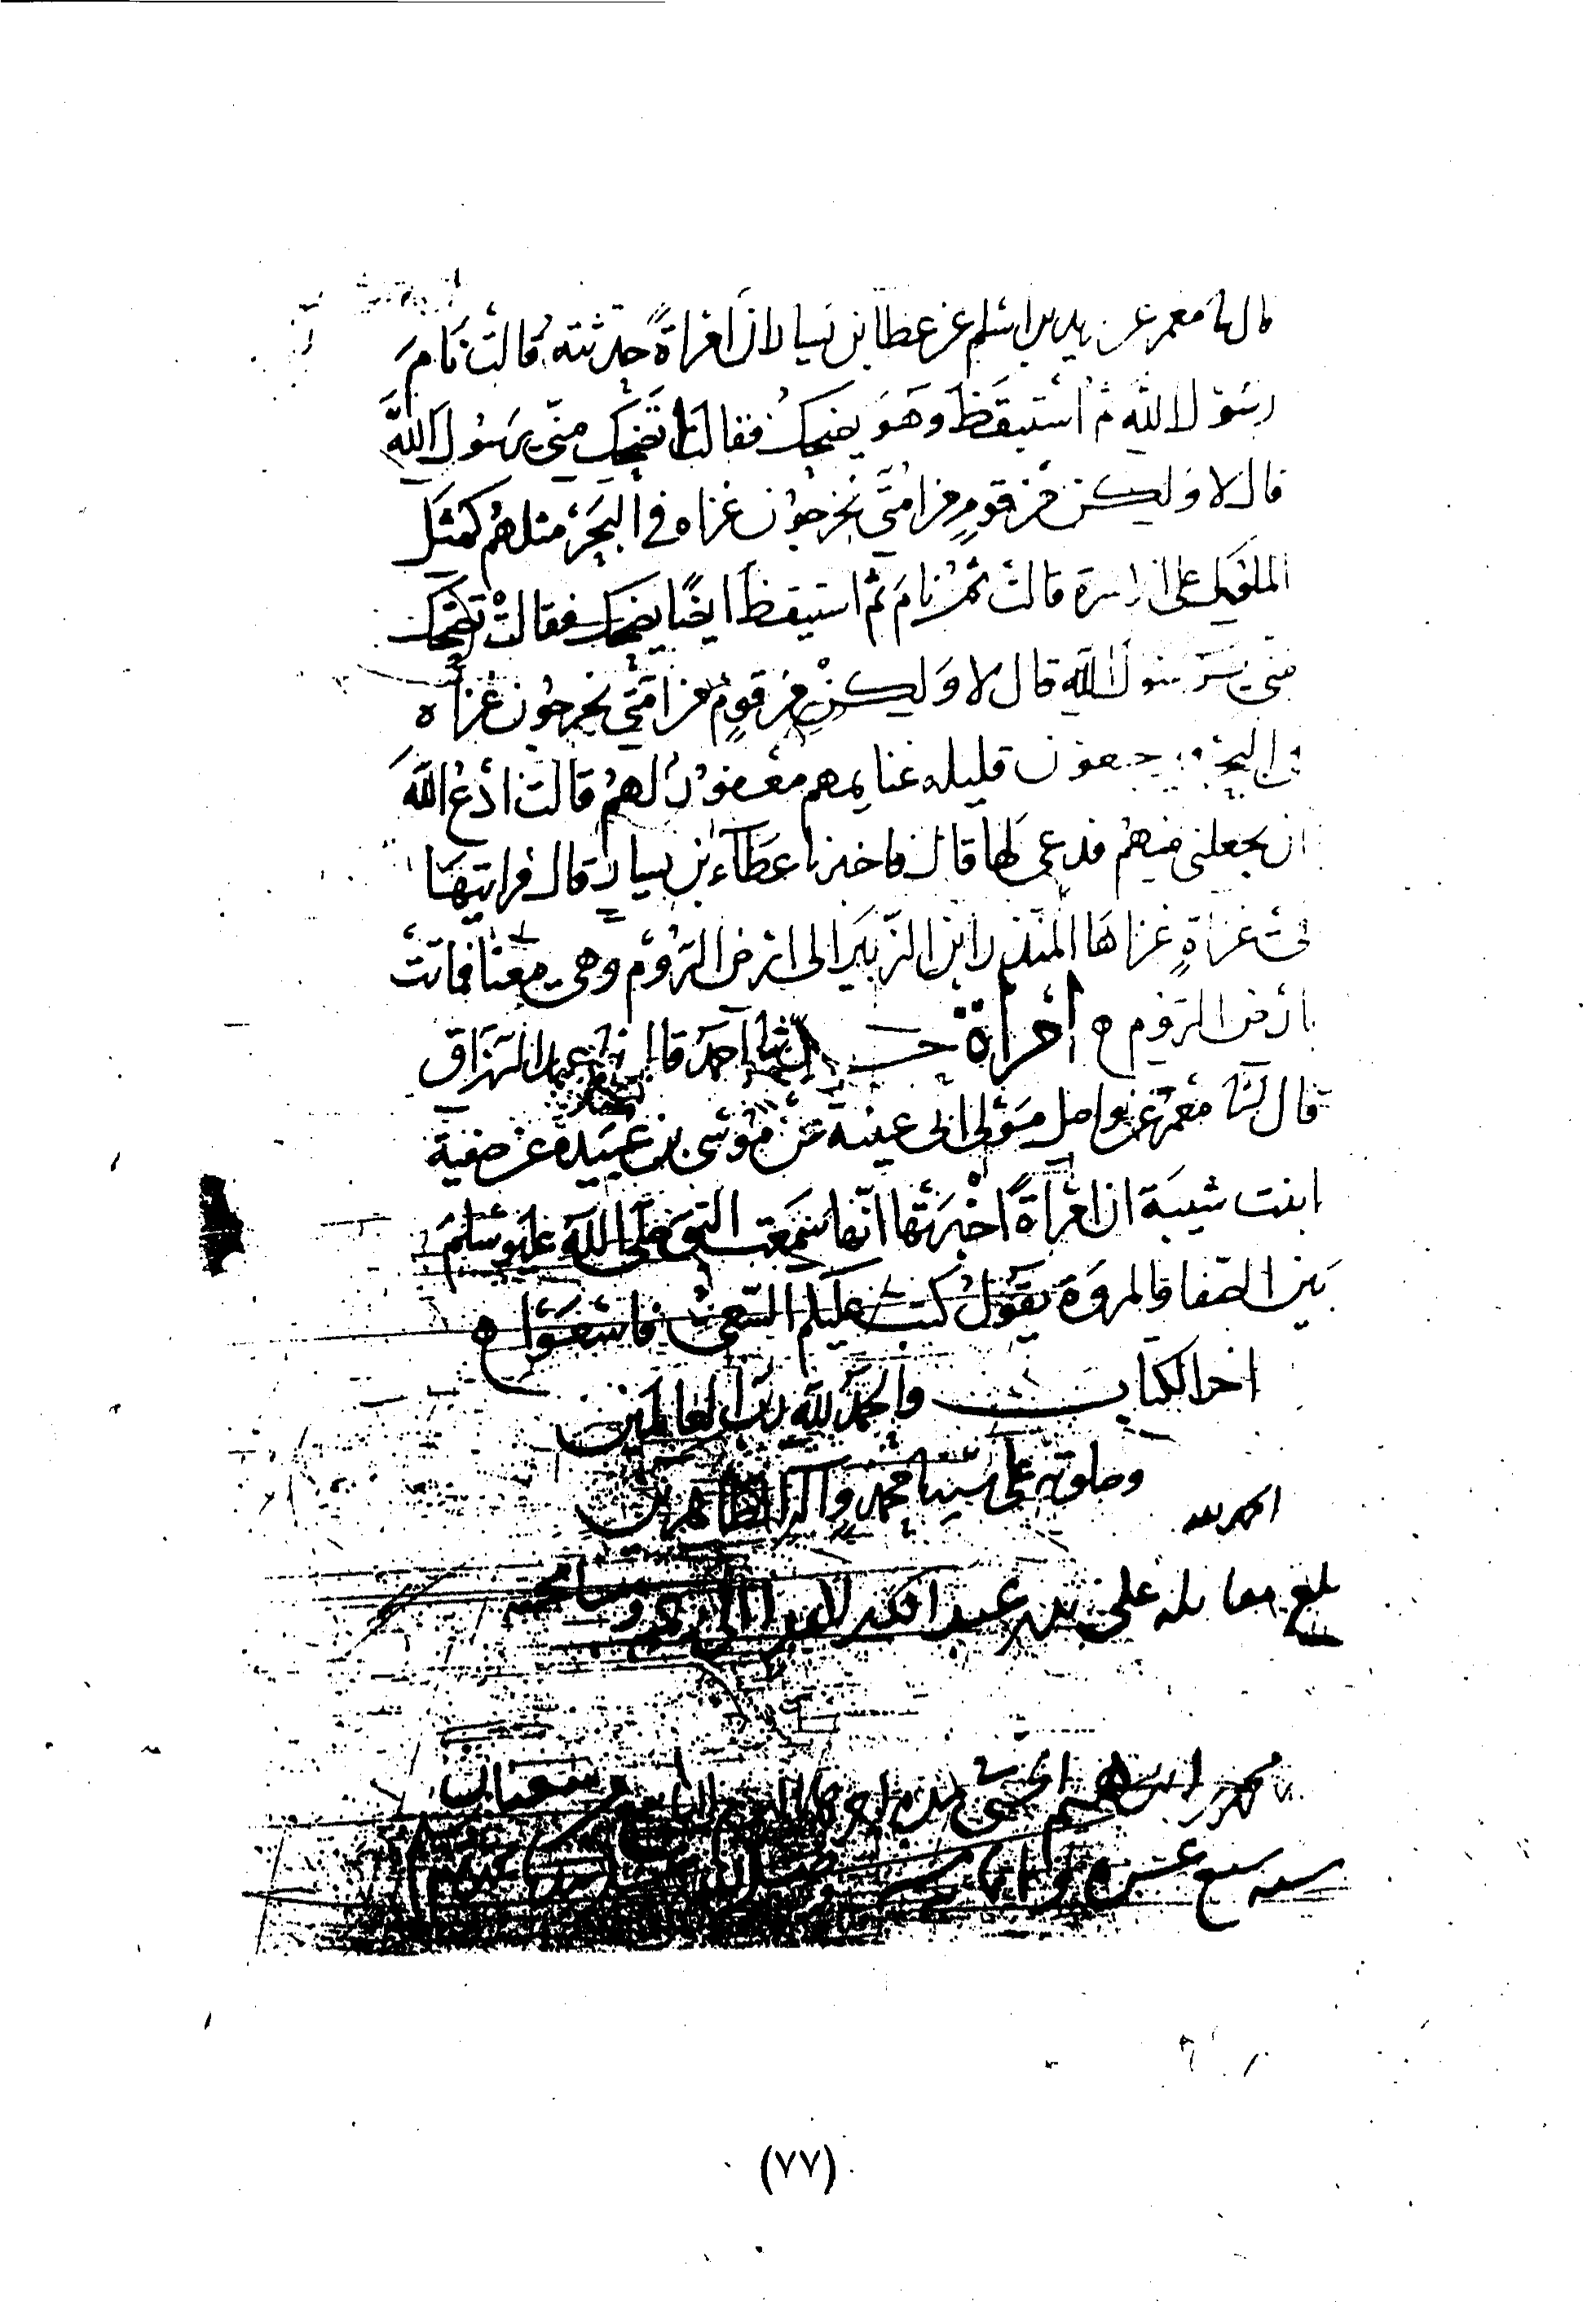 قال نا معمر عن زيد بن اسلم عن عطا بن يسار ان امراةً حدثته قالت نام
رسول الله ثم استيقظ وهو يضحك فقالت اتضحك مني يرسول الله
قال لا ولكن من قوم من امتي يخرجون غزاه في البحر مثلهم كمثل
الملوك على الاسرة قالت ثم نام ثم استيقظ ايضًا يضحك فقالت تضحك
مني يرسول الله قال لا ولكن من قوم من امتي يخرجون غزاه
في البحر فيرجعون قليله غنايمهم مغفورٌ لهم قالت ادع الله
ان يجعلني منهم فدعى لها قال فاخبرنا عطاء بن يسار قال فرايتها
في غزاةٍ غزاها المنذر ابن الزبير الى ارض الروم وهي معنا فماتت
بارض الروم ه امرأة حدثنا احمد قال نا عبد الرزاق
قال نا معمر عن واصل مولى ابي عيينه عن موسى بن عبيده عن صفية
ابنت شيبة ان امرأةً اخبرتها انها سمعت النبي صلى الله عليه وسلم
بين الصفا والمروة يقول كتب عليكم السعي فاسعوا ه
اخر الكتاب والحمد لله رب العالمين
وصلوته على سيدنا محمد واله الطاهرين
الحمد لله
بلغ مقابله علي بن عبد
سنه سبع عشره
(٧٧)